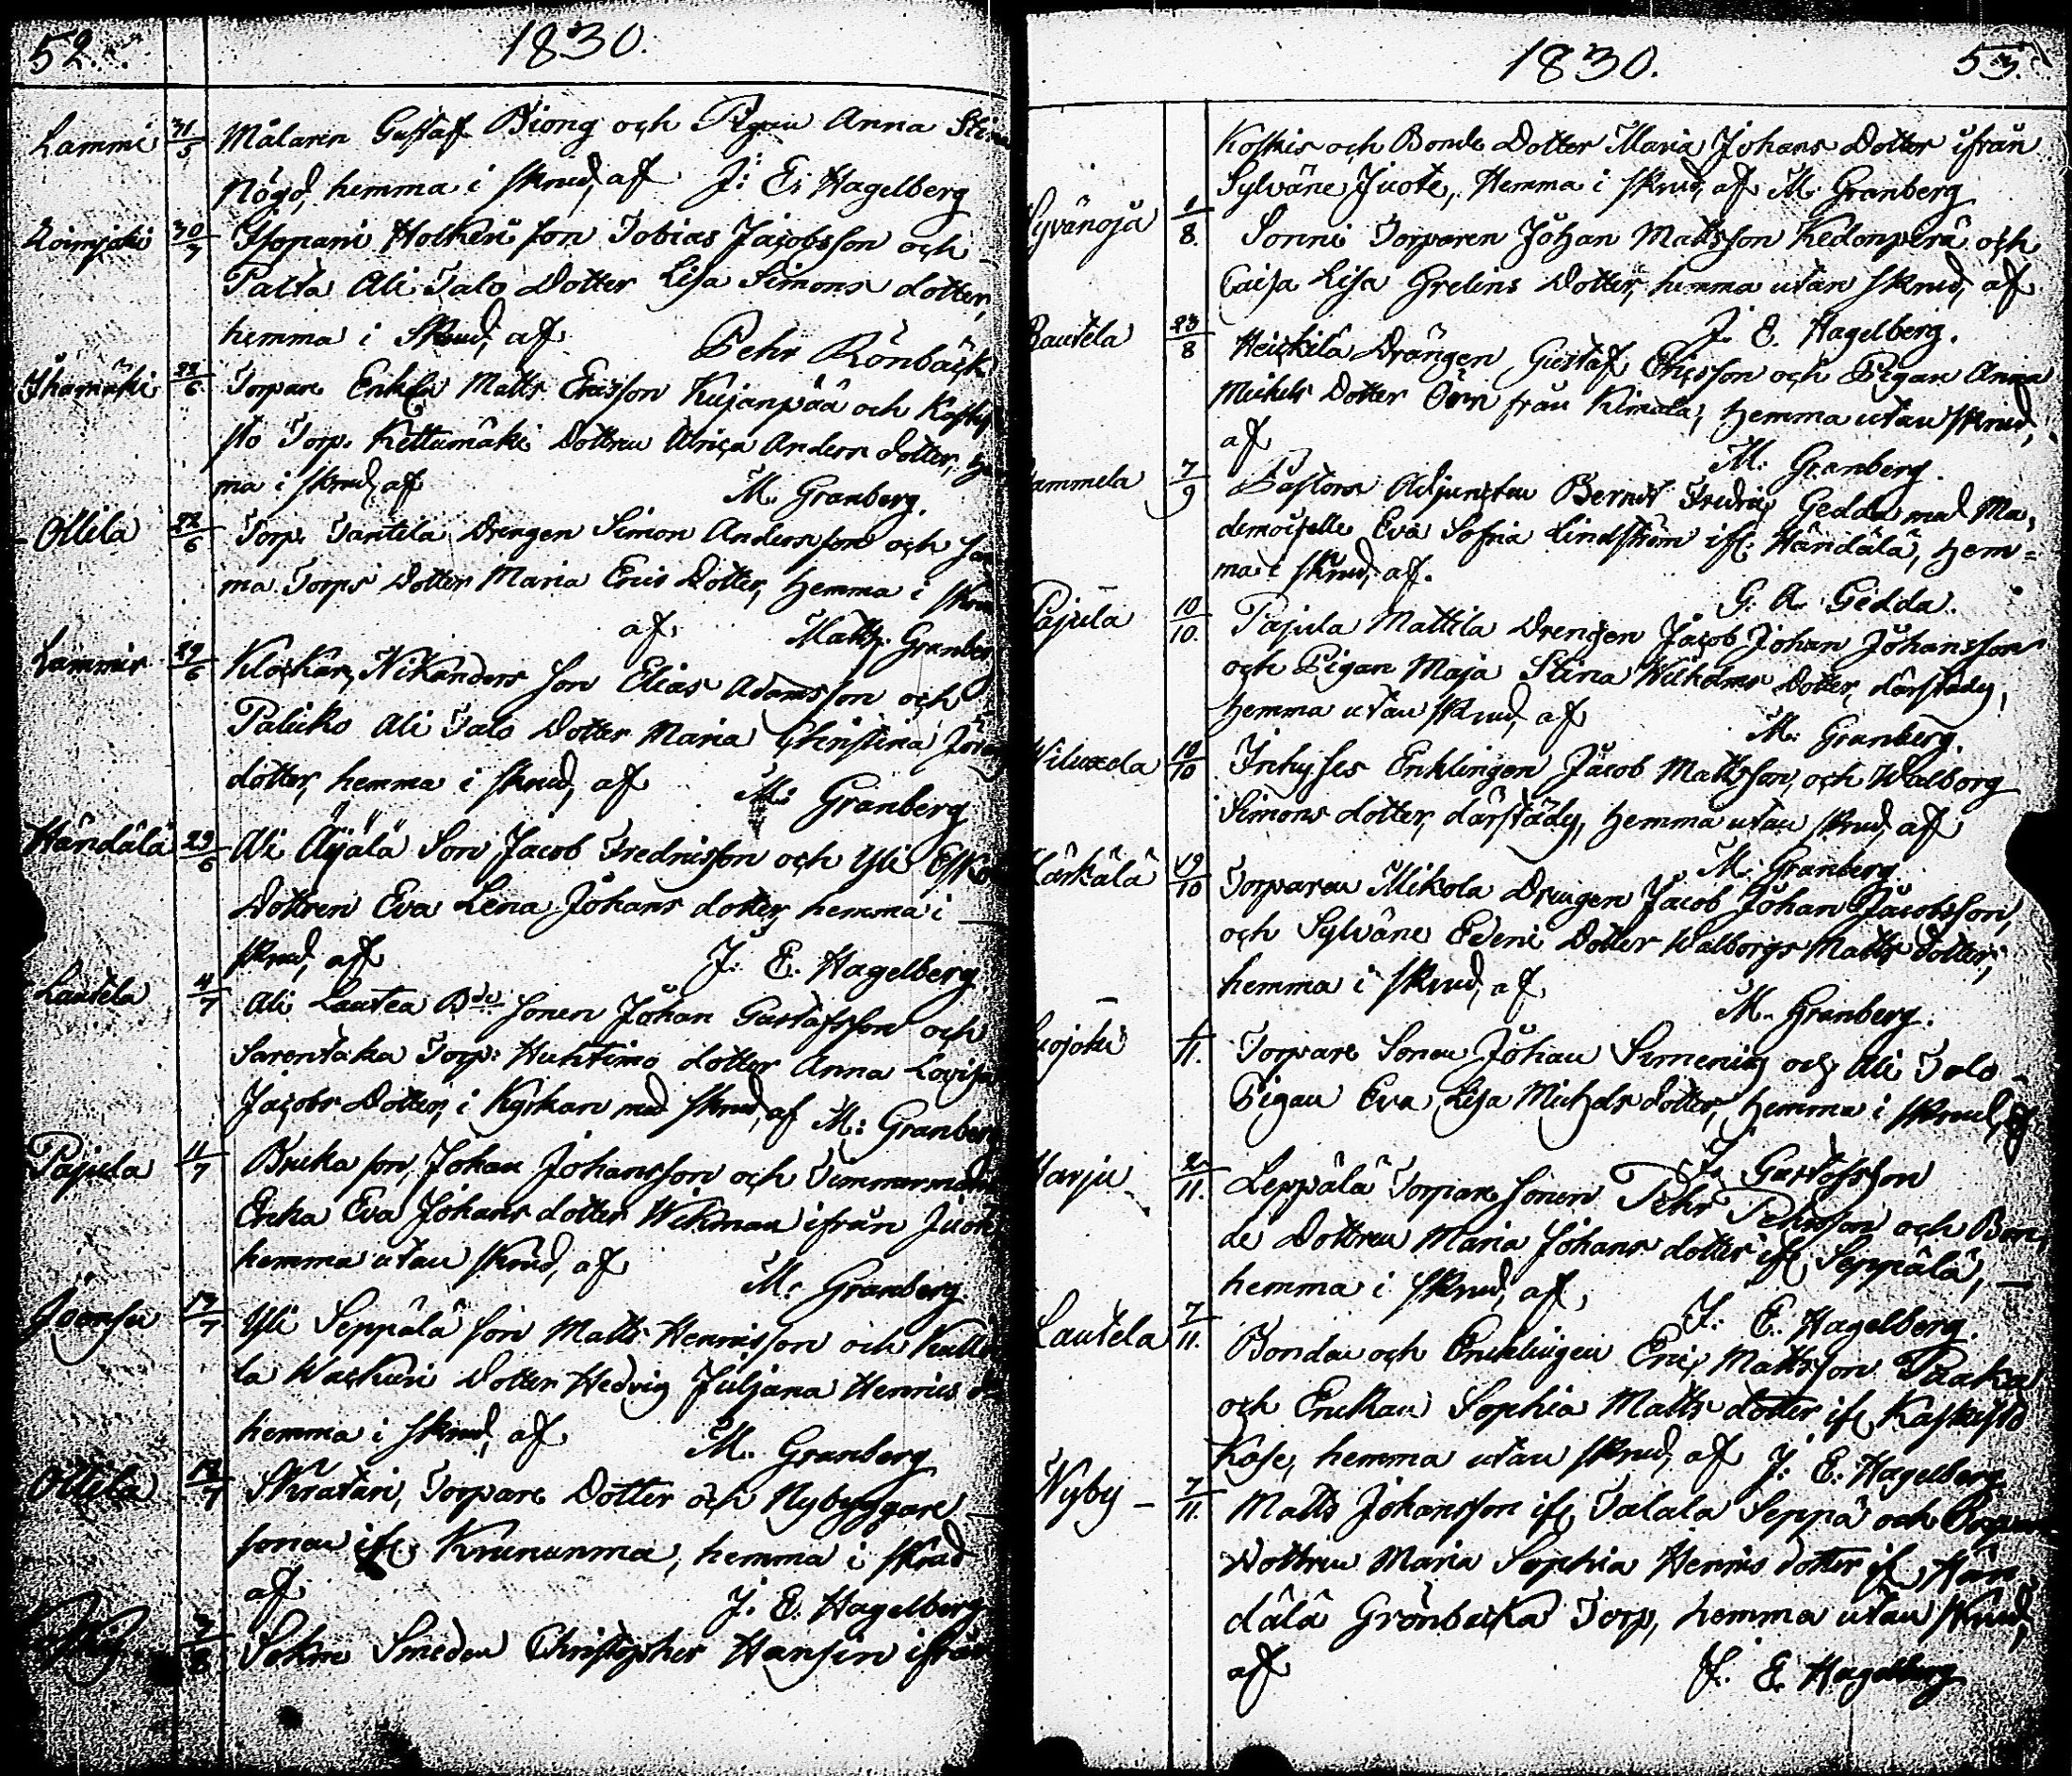 52.
1830.
Lammi 31/5 Målaren Gustaf Biong och Pigan Anna Stina
Högd, hemma i skrud, af J: E: Hagelberg
Loimjoki 30/7 Isopani Holken son Tobias Jacobsson och
Palta Ali Talo Dotter Lisa Simons dotter,
hemma i Skrud, af Pehr Rönbäck
Ihamäki 22/6 Torpare Enkla Matts Ericsson Kujanpää och
sto Torp. Kettumäki Dottren Ulrica Anders dotter, hem
ma i skrud, af M. Granberg.
Ollila 22/6 Torp. Tantila Drengen Simon Andersson och sam
ma Torps Dotter Maria Erics Dotter, hemma i skrud
af Matth. Granberg
Lammi 29/6 Klockar, Nikanders son Elias Adamsson och
Paluko Ali Talo Dotter Maria Christina
dotter, hemma i skrud, af M: Granberg
Händälä 29/6 Ali Äijälä Son Jacob Fredricsson och Yli
Dottren Eva Lena Johans dotter, hemma i
skrud, af J. E. Hagelberg
Lautela 4/7 Ali Lautea Bde sonen Johan Gustafsson och
Sarentaka Torp: Huhtimo dotter Anna Lovisa
Jacobs Dotter, i Kyrkan med skrud, af M: Granberg
Pajula 11/7 son, Johan Johansson och
Enka Eva Johans dotter Wikman ifrån
hemma utan skrud, af M. Granberg.
Joensu /7 Yli Seppälä son Matts Henricsson och
la Dotter Hedvig Juliana Henrics
hemma i skrud, af M. Granberg
Ollila /7 Skratari, Torpare Dotter och Nybyggare
sonen ifr. Krunumma, hemma i skrud
af J. E. Hagelberg
Sokne Smeden Christopher Hansin ifrån
1830.
53.
Koskis och Bonde Dotter Maria Johans Dotter ifrån
Sylväne, Hemma i skrud, af M. Granberg
Syvänoja 1/8. Sonni Torparen Johan Mattsson Kedonperä och
Caisa Lisa Grelins Dotter, hemma utan skrud, af
J. E. Hagelberg.
Rautela 23/8 Heickilä Drängen Gustaf Ericsson och Pigan Anna
Michels Dotter från Kimala, hemma utan skrud,
af M. Granberg.
Tammela 7/9 Pastors Adjuncten Berndt Fredric Gedda med Ma-
demoiselle Eva Sofia Lindström ifr. Händälä, hem=
ma i skrud, af.
G. A. Gedda.
Pajula 10/10. Pajula Mattila Drengen Jacob Johan Johansson
och Pigan Maja Stina Wilhelms Dotter, därstädes,
hemma utan skrud, af M. Granberg.
10/10 Enklingen Jacob Mattsson, och Walborg
Simons dotter, därstädes, hemma utan skrud, af
M. Granberg.
Härkälä /10 Torparen Mikola Drengen Jacob Johan Jacobsson,
och Sylväne Edeni Dotter Walborgs Matts Dotter,
hemma i skrud, af
M. Granberg.
/11. Torpare Sonen Johan Simenius och Ali Talo
Pigan Eva Lisa Michels dotter, hemma i skrud, af
J. Gustafsson
Harju 2/11. Leppälä Torpare sonen Pehr Pehrsson och Bon-
de Dottren Maria Johans dotter ifr Seppälä, —
hemma i skrud, af,
J. E. Hagelberg.
Lautela 7/11. Bonden och Enklingen Eric Mattsson Paaka
och Enckan Sophia Matts dotter ifr Kaskisto
Kose, hemma utan skrud, af J. E. Hagelberg
Nyby — 7/11. Matts Johansson ifr Talala Seppä och
Dottren Maria Sophia Henrics dotter if Hän
dälä Grönbacka Torp, hemma utan skrud,
af J. E. Hagelberg